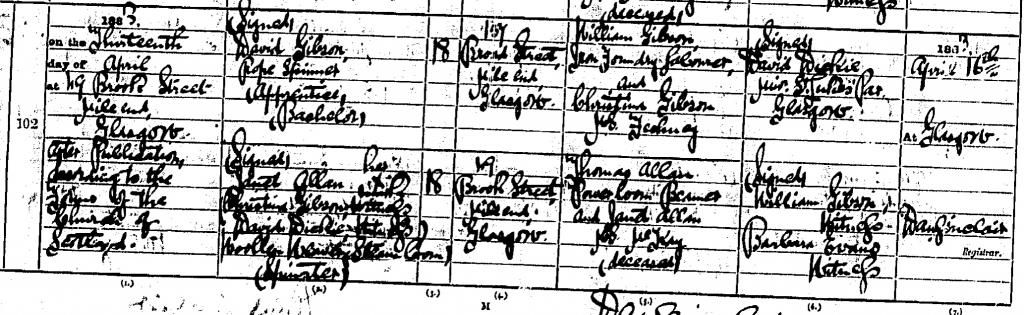 (deceased)
Witness
102
1883.
on the Thirteenth
day of April
at 49 Brook Street
Mile end,
Glasgow.
After Publication,
according to the
Forms of the
Church of
Scotland.
(1.)
(Signed)
David Gibson,
Rope Spinner
(Apprentice)
(Bachelor)
(Signed)
Janet Allan her
Christina Gibson, Witness
David Dickie Witness
Woollen Weaver (Steam Loom)
(Spinster)
(2.)
18
18
(3.)
137
Broad Street,
Mile end
Glasgow.
49
Brook Street,
Mile end.
Glasgow.
(4.)
William Gibson
Iron Foundry Labourer,
and
Christina Gibson
M.S.
Thomas Allan
Power loom Beamer
and Janet Allan
M.S. McKay
(deceased)
(5.)
(Signed)
David Dickie
Glasgow
(Signed)
William Gibson,
Witness.
Barbara Evans
Witness
(6.)
1883
April 16th
At Glasgow.
Sinclair
Registrar.
(7.)
M